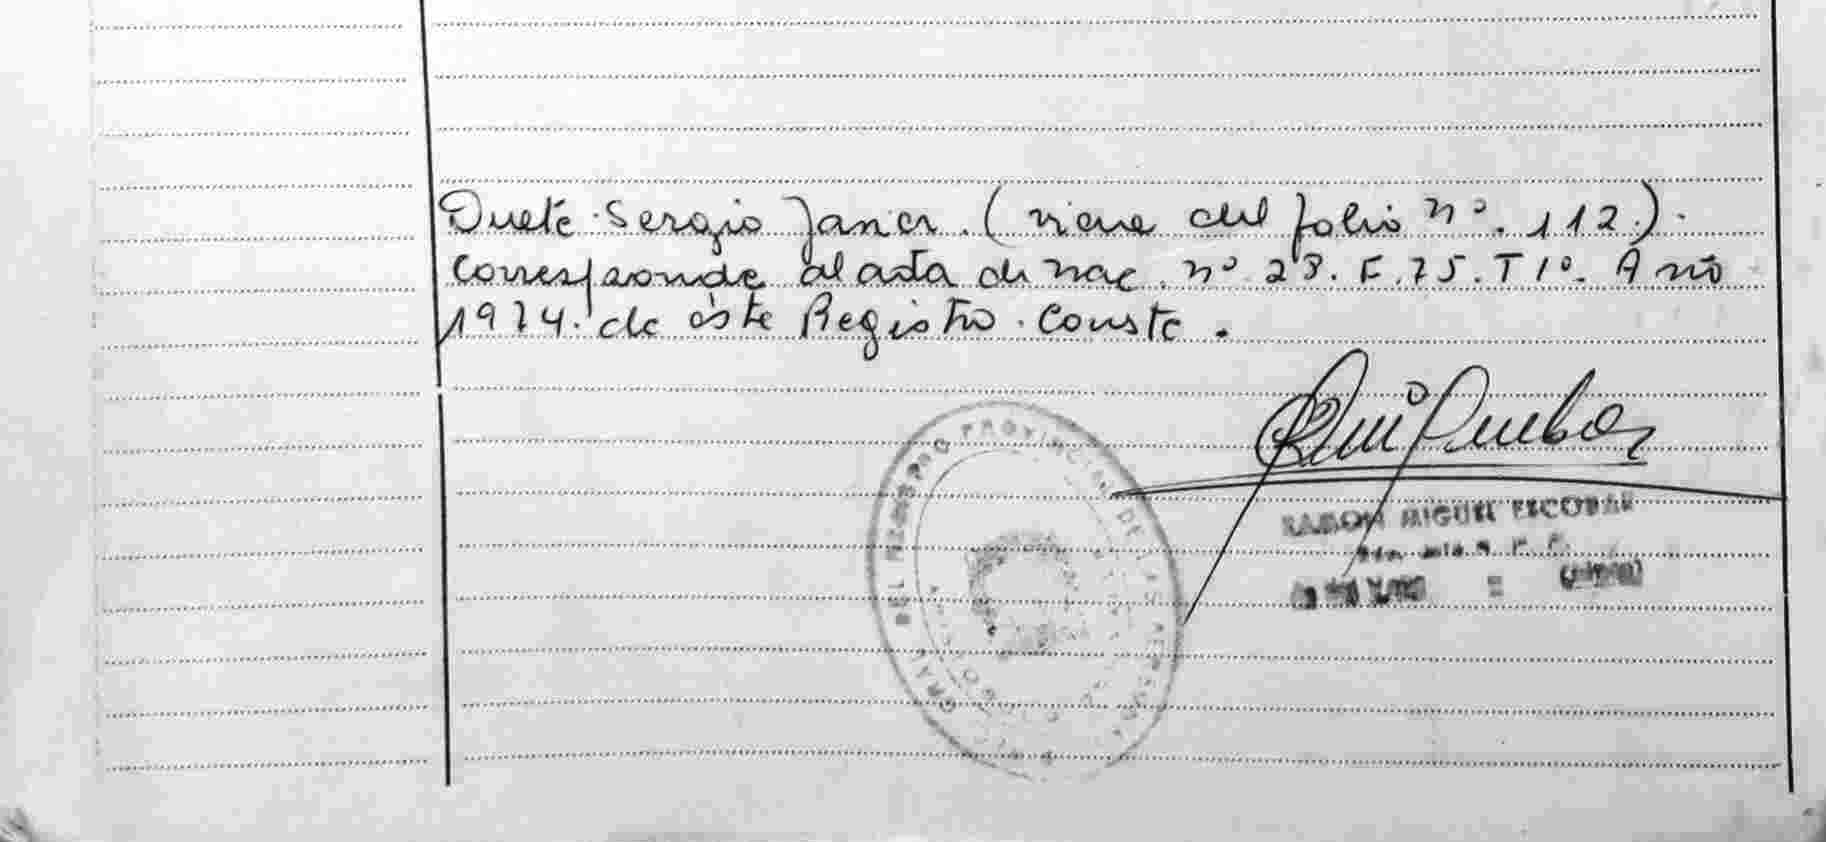 Dueté Sergio Javier. (viene del folio nº. 112.).
Corresponde al acta de nac. nº 28. F. 75. T 1º. Año
1974. de éste Registro. Conste.
DEL REGISTRO PROVINCIAL DE LAS PERSONAS
RAMON MIGUEL ESCOBAR